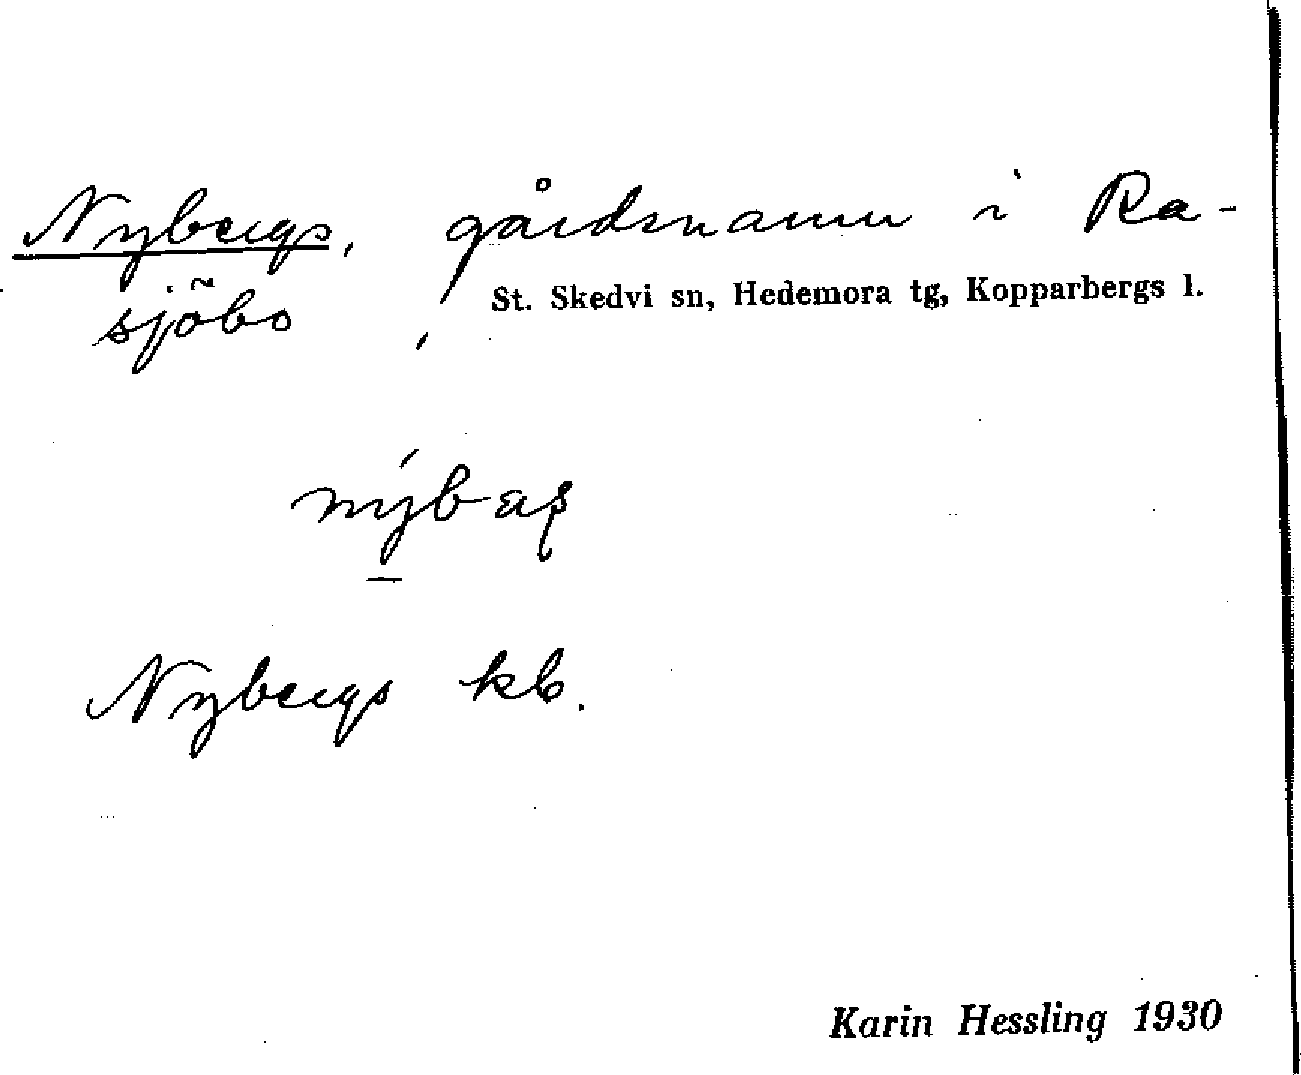 Nybergs, gårdsnamn i Ra-
sjöbo,
St. Skedvi sn, Hedemora tg, Kopparbergs l.
Nybergs kb.
Karin Hessling 1930